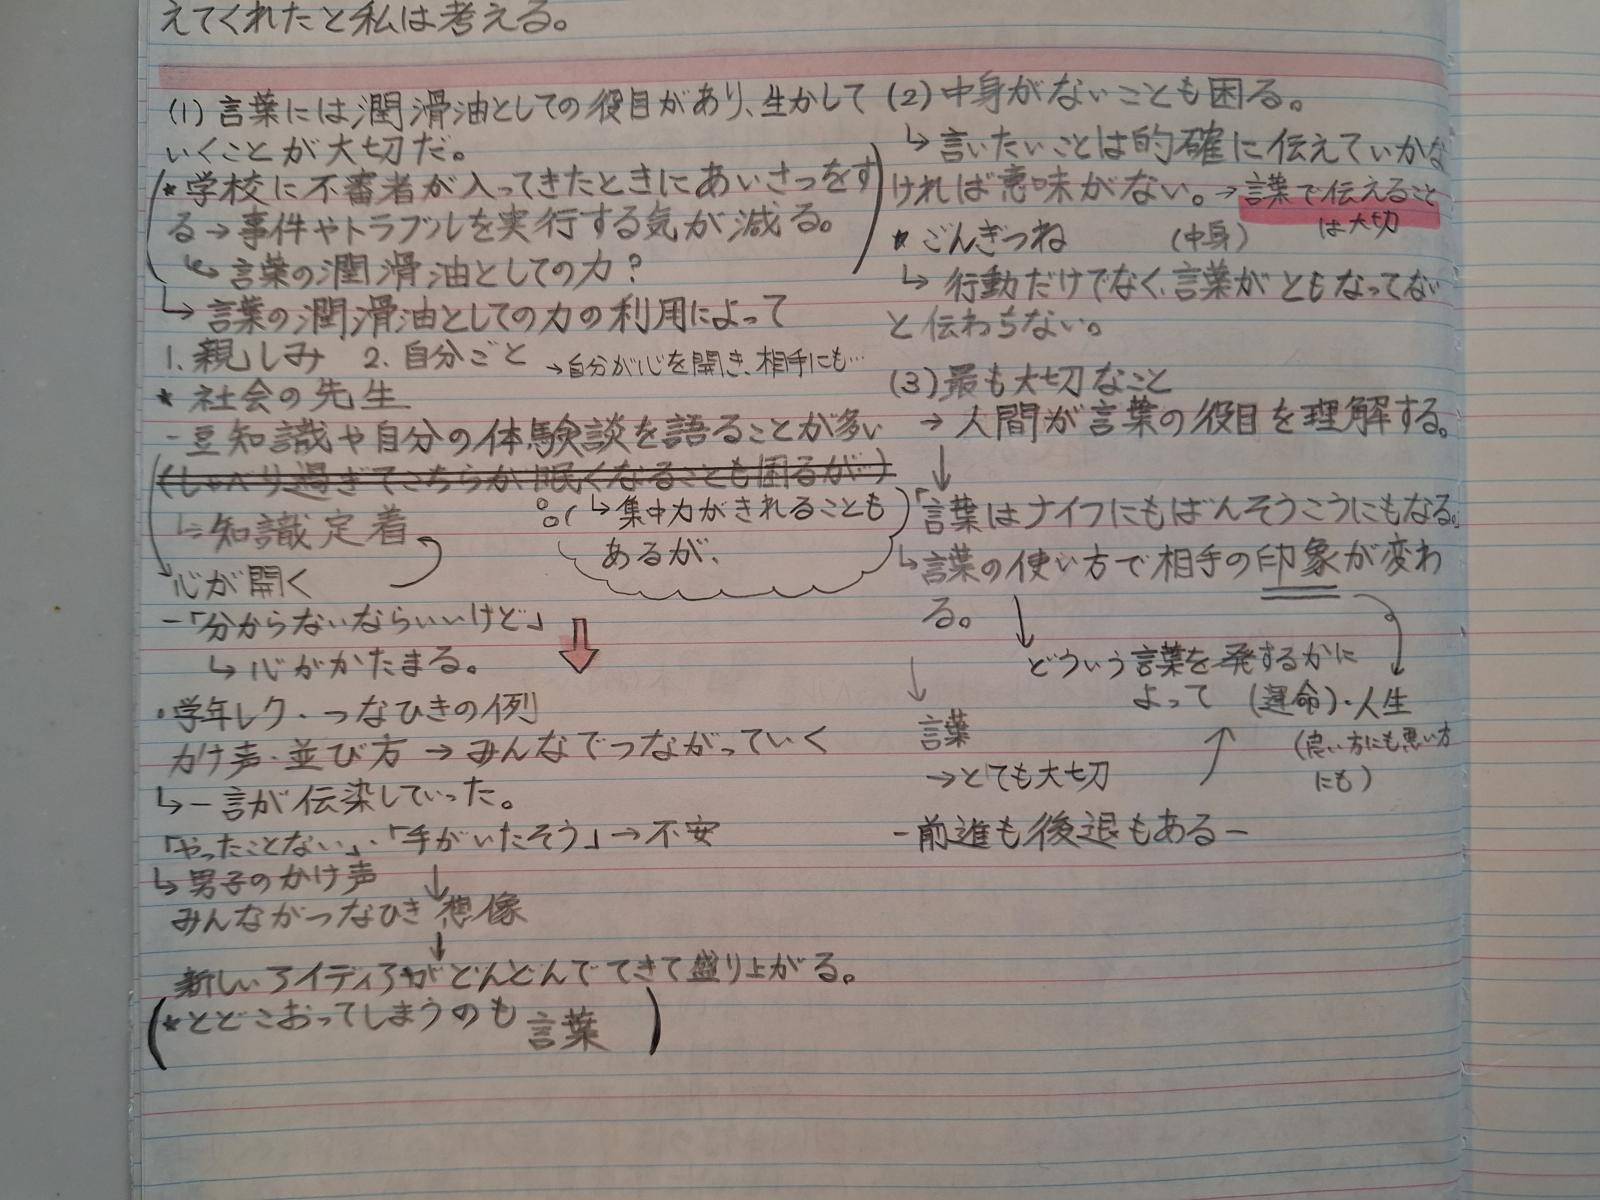 えてくれたと私は考える。
(1) 言葉には潤滑油としての役目があり、生かして
いくことが大切だ。
(★学校に不審者が入ってきたときにあいさつをす
る→事件やトラブルを実行する気が減る。
↳ 言葉の潤滑油としての力?)
↳ 言葉の潤滑油としての力の利用によって
1. 親しみ 2. 自分ごと →自分が心を開き、相手にも…
★ 社会の先生
- 豆知識や自分の体験談を語ることが多い
(しゃべり過ぎてこちらが眠くなることも困るが…)
(↳ 集中力がきれることも
あるが、)
↳ 知識定着
心が開く
-「分からないならいいけど」
↳ 心がかたまる。
・学年レク・つなひきの例
かけ声・並び方 → みんなでつながっていく
↳ 一言が伝染していった。
「やったことない」・「手がいたそう」→ 不安
↳ 男子のかけ声 ↓
みんながつなひき 想像
↓
新しいアイディアがどんどんでてきて盛り上がる。
(★とどこおってしまうのも 言葉)
(2) 中身がないことも困る。
↳ 言いたいことは的確に伝えていかな
ければ意味がない。→言葉で伝えること
は大切
★ ごんぎつね (中身)
↳ 行動だけでなく、言葉がともなってない
と伝わらない。
(3) 最も大切なこと
→ 人間が言葉の役目を理解する。
↓
「言葉はナイフにもばんそうこうにもなる。」
↳ 言葉の使い方で相手の印象が変わ
る。
↓ どういう言葉を発するかに
よって (運命)・人生
(良い方にも悪い方
にも)
↓
言葉
→とても大切
- 前進も後退もある -